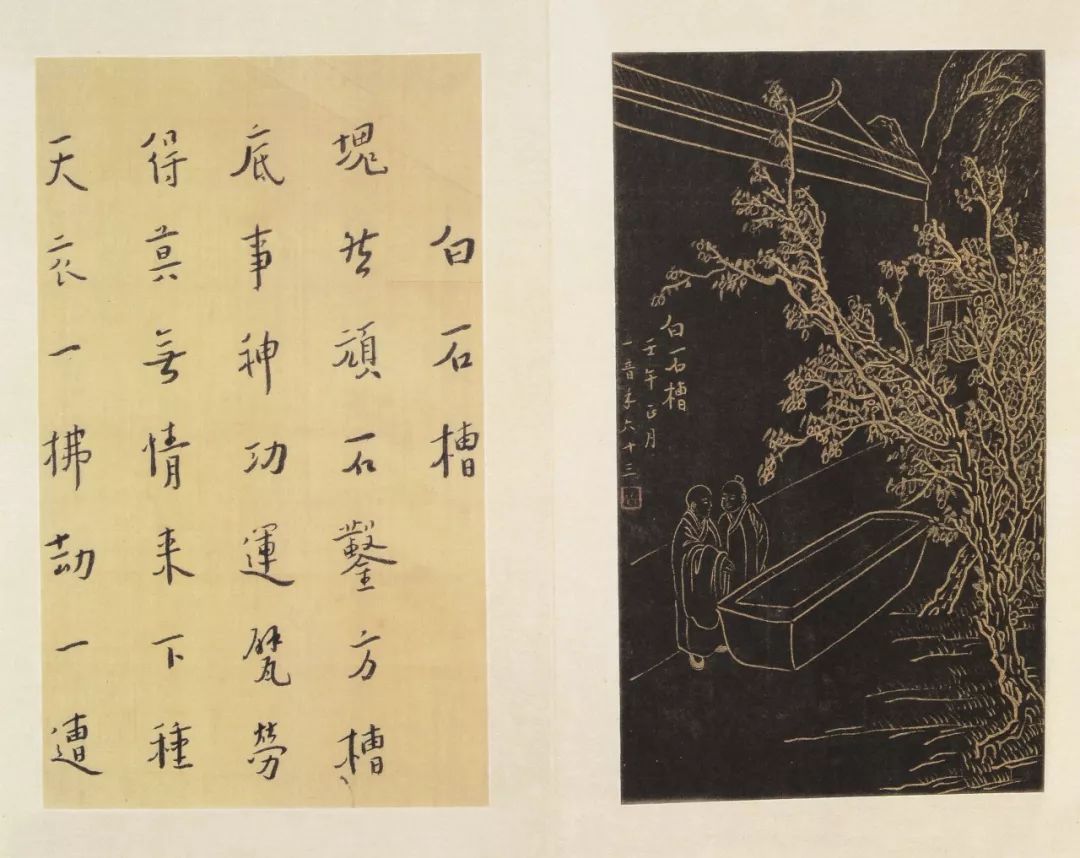 白石槽
塊然頑石鑿方槽
底事神功運甓勞
得莫無情來下種
天衣一拂劫一遭
白石槽
壬午正月
一音年六十三